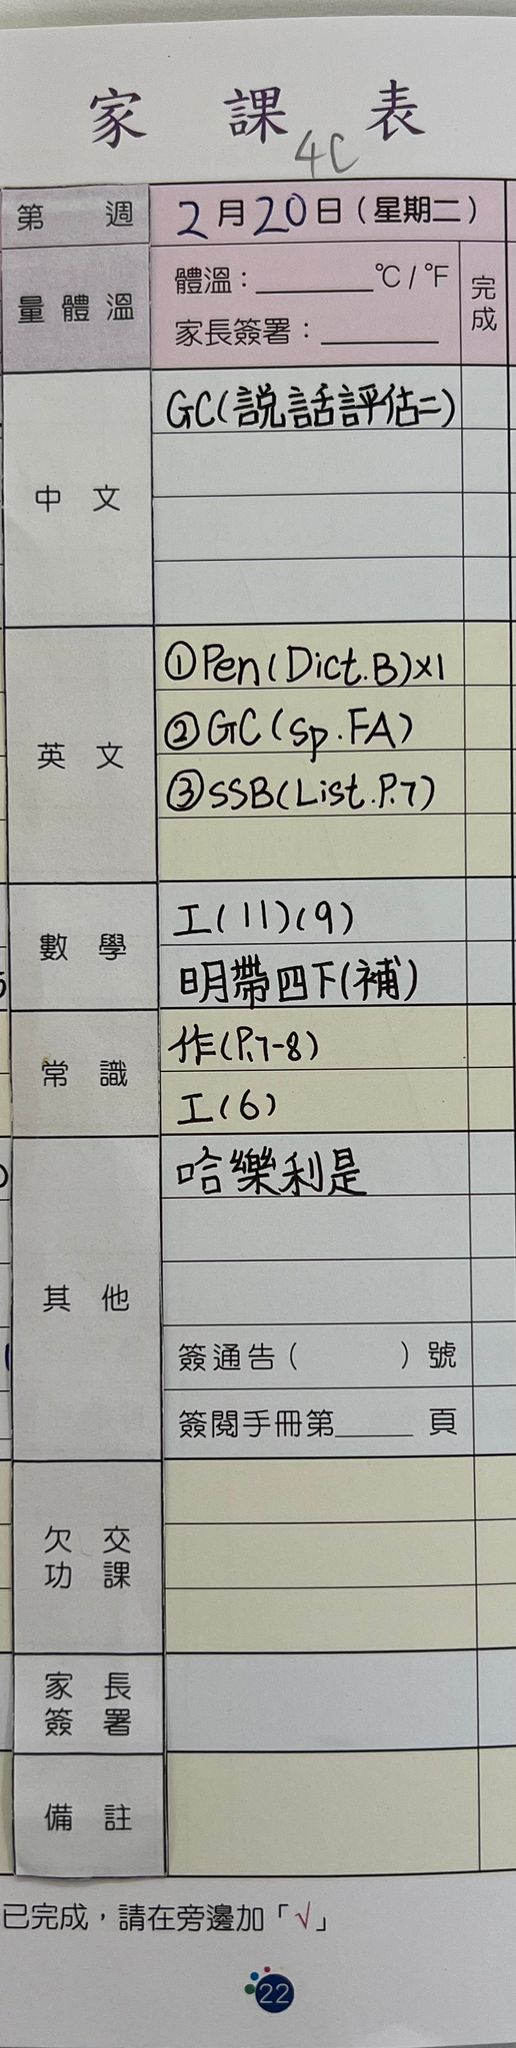 家課表
4C
第 週 2月20日(星期二)
量體溫 體溫:________℃/℉ 完成
家長簽署:________
中文 GC(説話評估二)
英文 ①Pen(Dict.B)×1
②GC(Sp.FA)
③SSB(List.P.7)
數學 工(11)(9)
明帶四下(補)
常識 作(P.7-8)
工(6)
其他 哈樂利是
簽通告( )號
簽閱手冊第_____頁
欠交功課
家長簽署
備註
已完成,請在旁邊加「√」
22